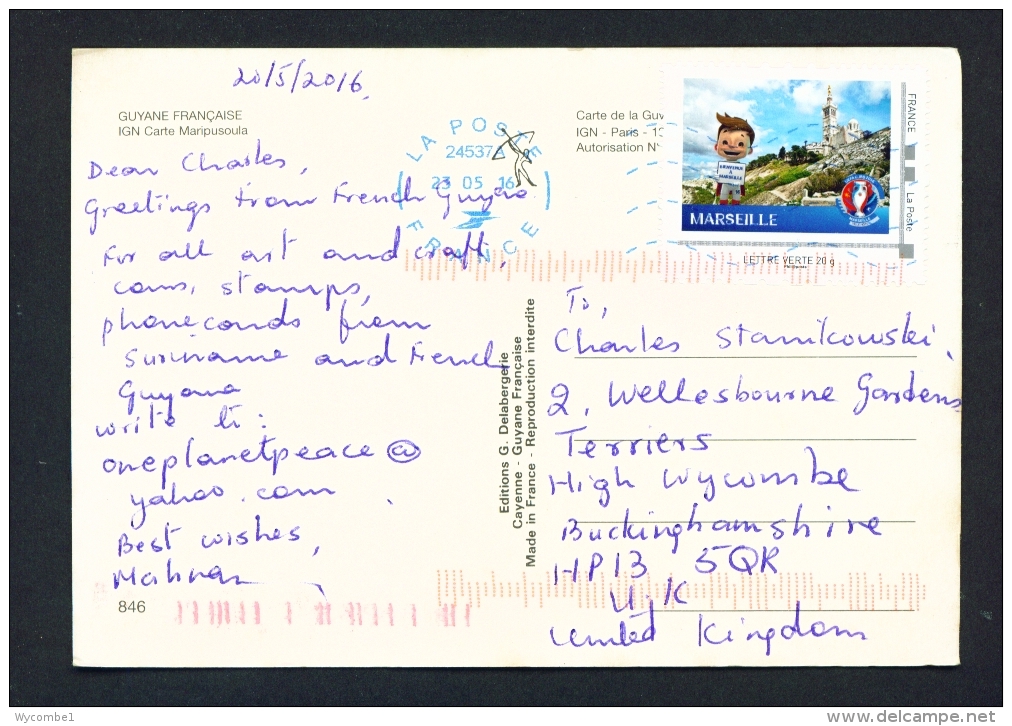 20/5/2016.
GUYANE FRANÇAISE
IGN Carte Maripusoula
Dear Charles,
Greetings from French Guyana
For all art and craft,
coins, stamps,
phonecards from
Suriname and French
Guyana
write to:
oneplanetpeace@
yahoo.com
Best wishes,
846
Carte de la Guy
IGN - Paris - 13
Autorisation N°
LA POSTE
24537A
23 05 16
FRANCE
BIENVENUE
A
MARSEILLE
MARSEILLE
FRANCE
La Poste
LETTRE VERTE 20 g
Editions G. Delabergerie
Cayenne - Guyane Française
Made in France - Reproduction interdite
To,
Charles Stanikowski,
2, Wellesbourne Gardens
Terriers
High Wycombe
Buckinghamshire
HP13 5QR
U.K
United Kingdom
Wycombe1
delcampe.net